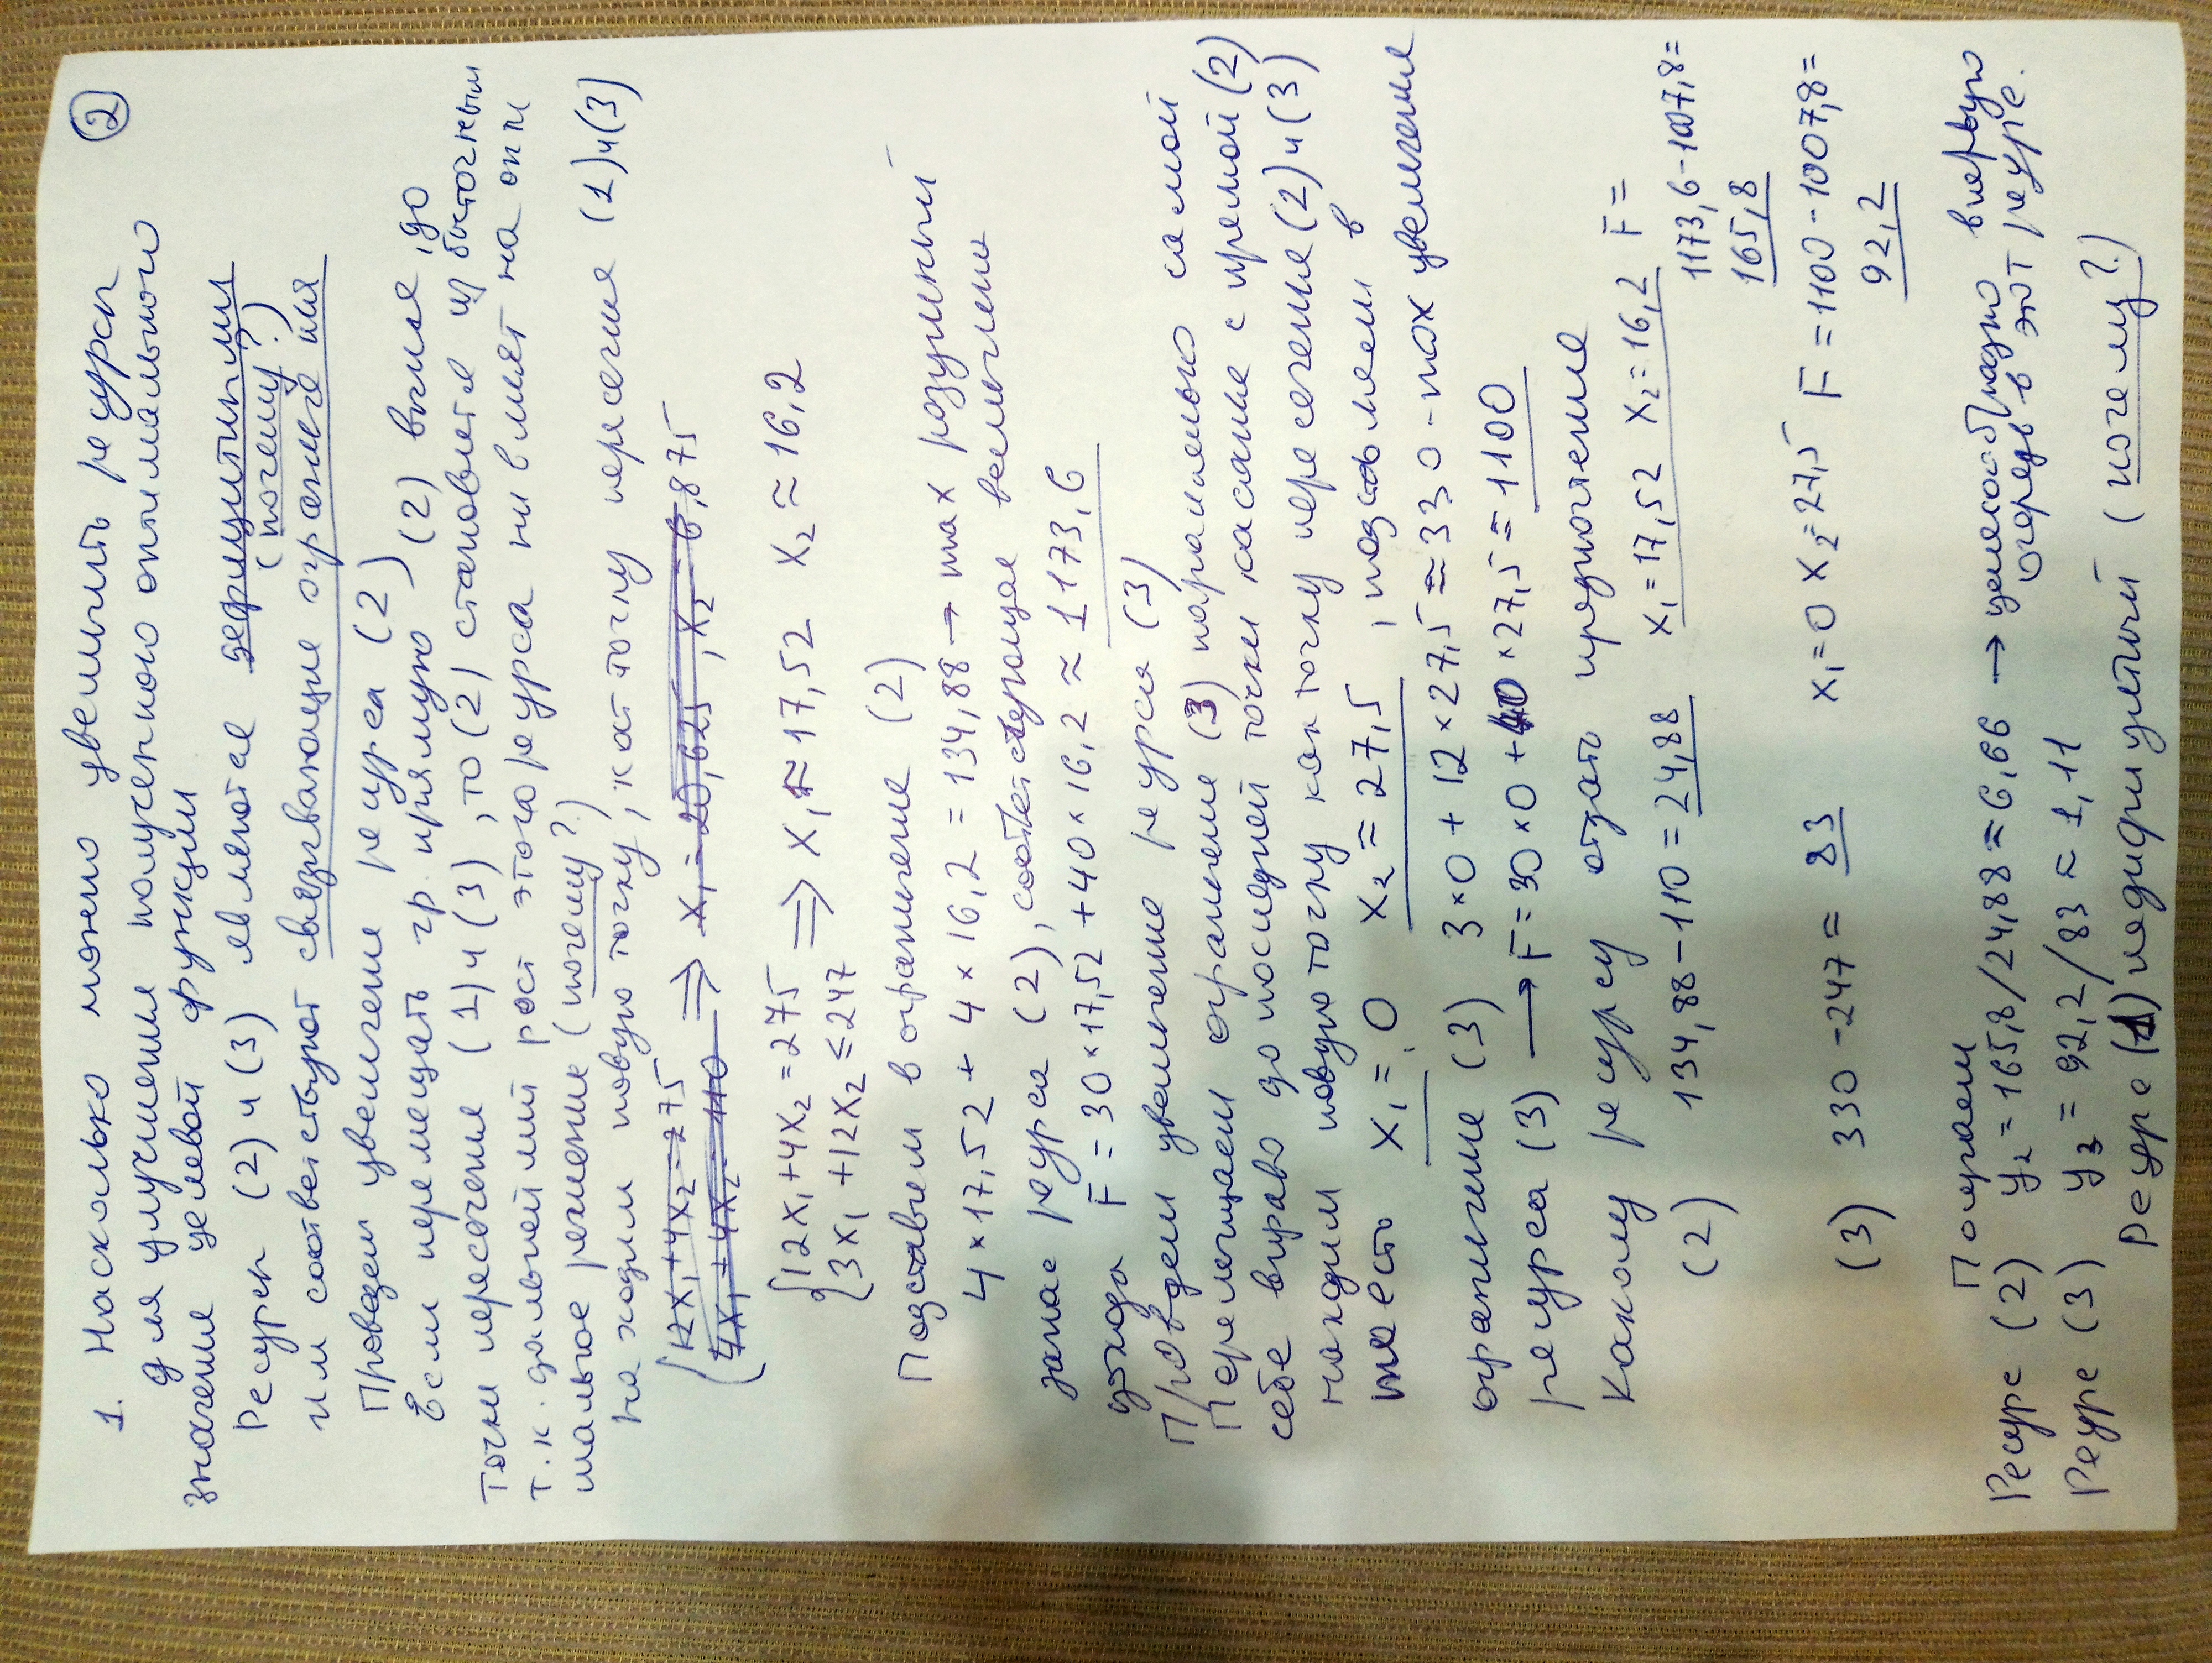 ②
1. Насколько можно увеличить ресурсы
для улучшения полученного оптимального
значения целевой функции
Ресурсы (2) и (3) являются дефицитными
(почему?)
им соответствуют связывающие ограничения
Проведем увеличение ресурса (2)
Если перемещать гр. прямую (2) выше, до
точки пересечения (1) и (3), то (2) становится избыточным
т.к. дальнейший рост этого ресурса не влияет на опти
мальное решение (почему?)
находим новую точку, как точку пересечения (1) и (3)
12x₁+4x₂=275
4x₁+4x₂ 110 ⟹ x₁=20,625, x₂=6,875
{12x₁+4x₂=275
3x₁+12x₂≤247 ⟹ x₁≈17,52 x₂≈16,2
Подставим в огранение (2)
4×17,52 + 4×16,2 = 134,88 → max разумный
запас ресурса (2), соответстерющее величины
дохода F = 30×17,52 + 40×16,2 ≈ 1173,6
Проведем увеличение ресурса (3)
Перемещаем огранение (3) параллельно самой
себе вправо до последней точки касание с прямой (2)
находим новую точку как точку пересечение (2) и (3)
то есть x₁=0 x₂=27,5, подставляем в
огранигние (3) 3×0 + 12×27,5 = 330 - max увеличение
ресурса (3) → F=30×0+40×27,5=1100
Какому ресурсу отдать предпочтение
(2) 134,88-110=24,88 x₁=17,52 x₂=16,2 F=
1173,6-1007,8=
165,8
(3) 330-247= 83 x₁=0 x₂=27,5 F=1100-1007,8=
92,2
Получаем
Ресурс (2) y₂=165,8/24,88=6,66 → целесообразно впервую
очередь в этот ресурс.
Ресурс (3) y₃=92,2/83≈1,11
Ресурс (1) недифицитный (почему?)